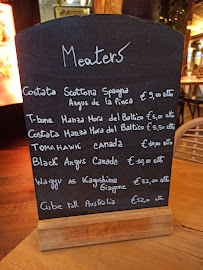 Meaters
Costata Scottona Spagna
Angus de la finca €9,00 etto
T-bone Hanza Hora del Baltico €6,00 etto
Costata Hanza Hora del Baltico €5,50 etto
TOMAHAWK CANADA etto
Black Angus Canada etto
Wagyu A5 Kagoshima €32,00 etto
Giappone
Cube roll Australia etto